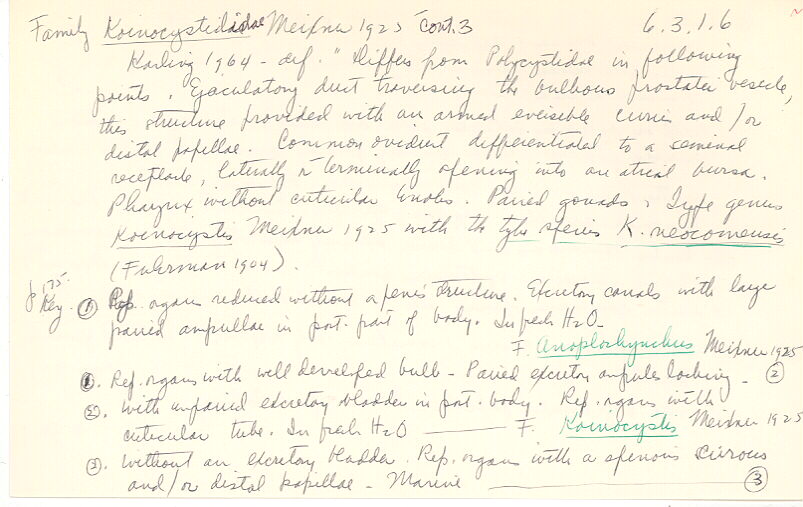 Family Koinocystididae Meixner 1925 Cont. 3 6.3.1.6
Karling 1964 - def. "Differs from Polycystidae in following
points. Ejaculatory duct traversing the bulbous prostatic vesicle,
this structure provided with an armed eversible cirrus and/or
distal papillae. Common oviduct differentiated to a seminal
receptacle, laterally or terminally opening into an atrial bursa.
Pharynx without cuticular knobs. Paired gonads. Type genus
Koinocystis Meixner 1925 with the type species K. neocomensis
(Fuhrman 1904).
p 175.
Key. ① Rep. organ reduced without a penis structure. Excretory canals with large
paired ampullae in post. part of body. In fresh H2O-
F. Anoplorhynchus Meixner 1925
①. Rep. organs with well developed bulb - Paired excretory ampules lacking - ②
②. With unpaired excretory bladder in post. body. Rep. organ with
cuticular tube. In fresh H2O - F. Koinocystis Meixner 1925
②. Without an excretory bladder. Rep. organ with a spenous cirrous
and/or distal papillae - Marine ③